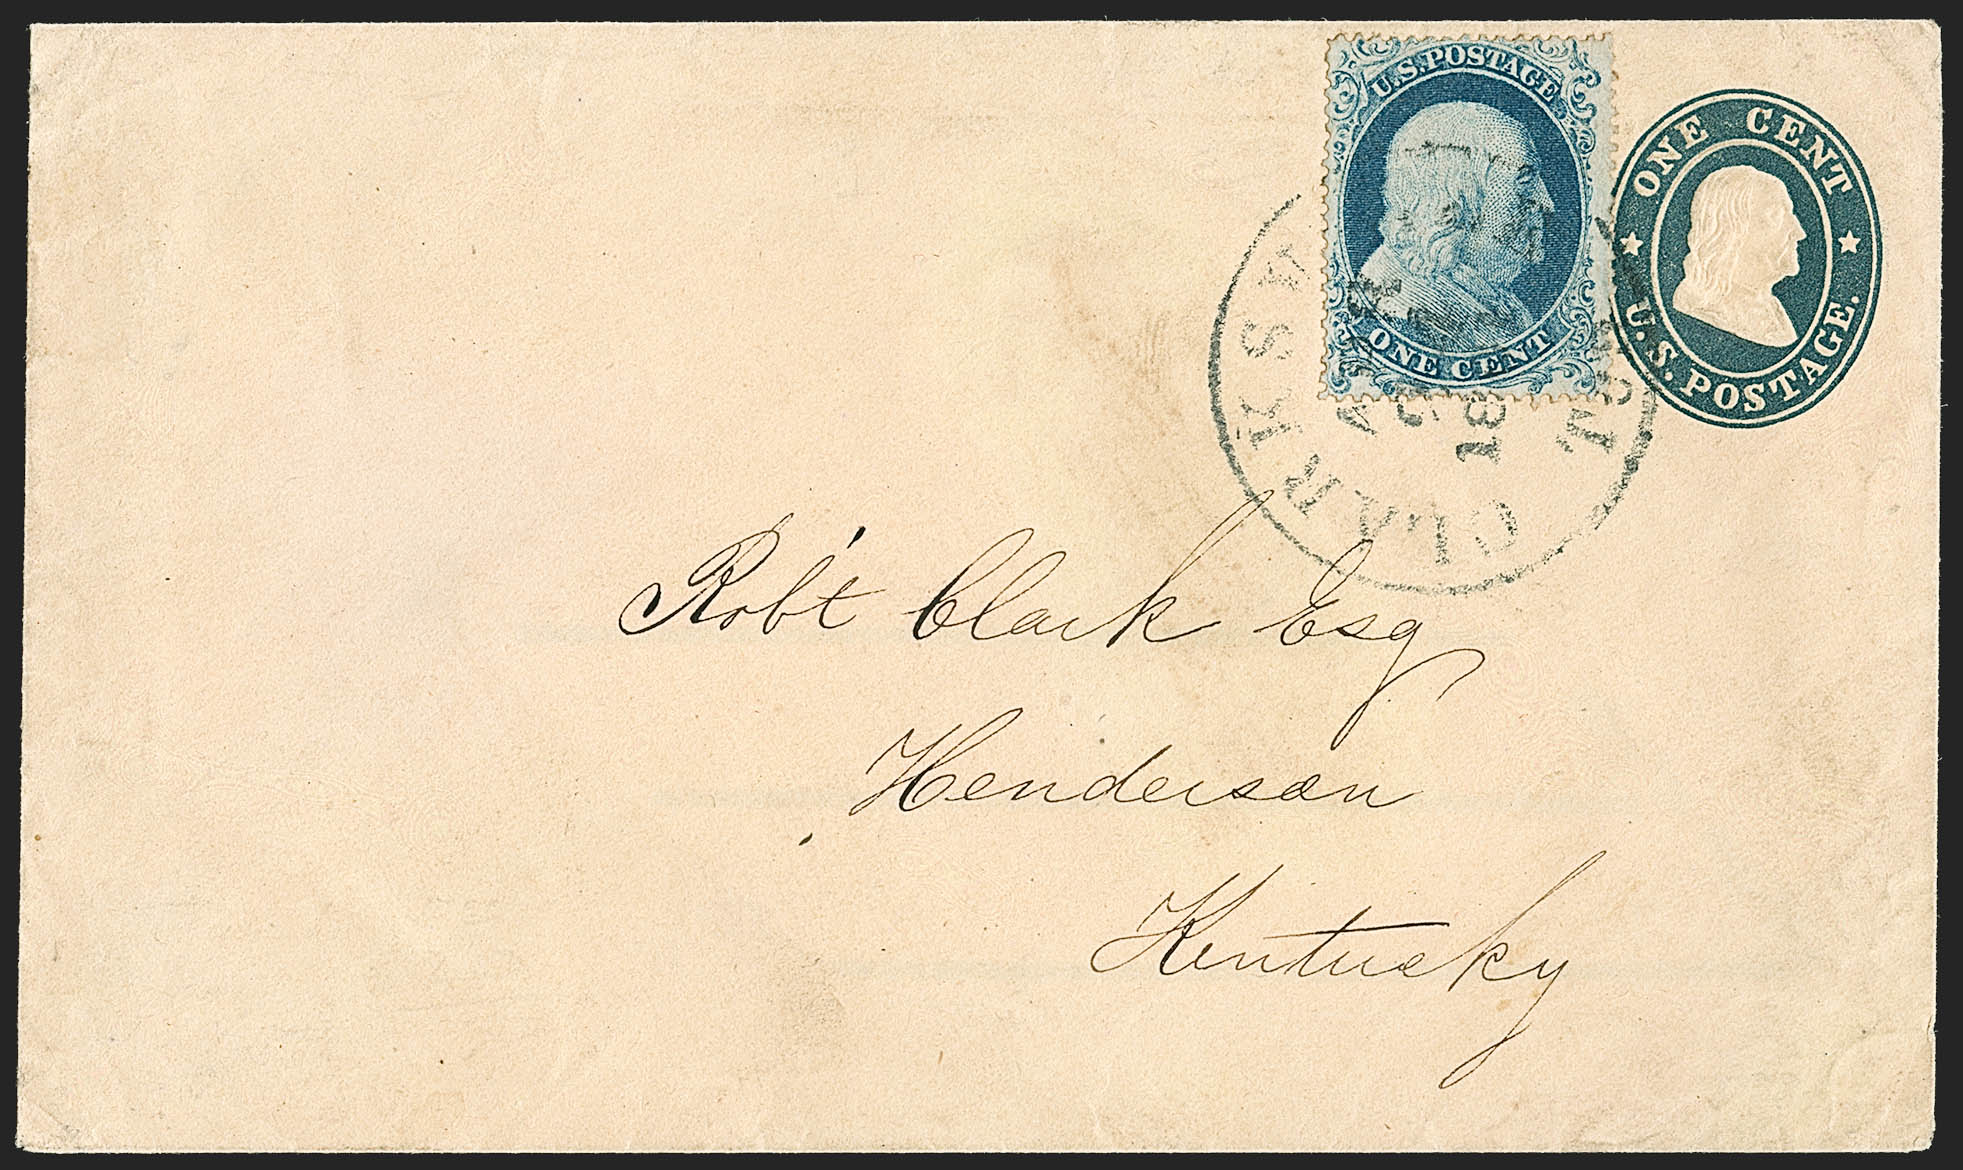 U.S. POSTAGE
ONE CENT
ONE CENT
U.S. POSTAGE.
CLARKSV
18
Rob't Clark Esq
Henderson
Kentucky